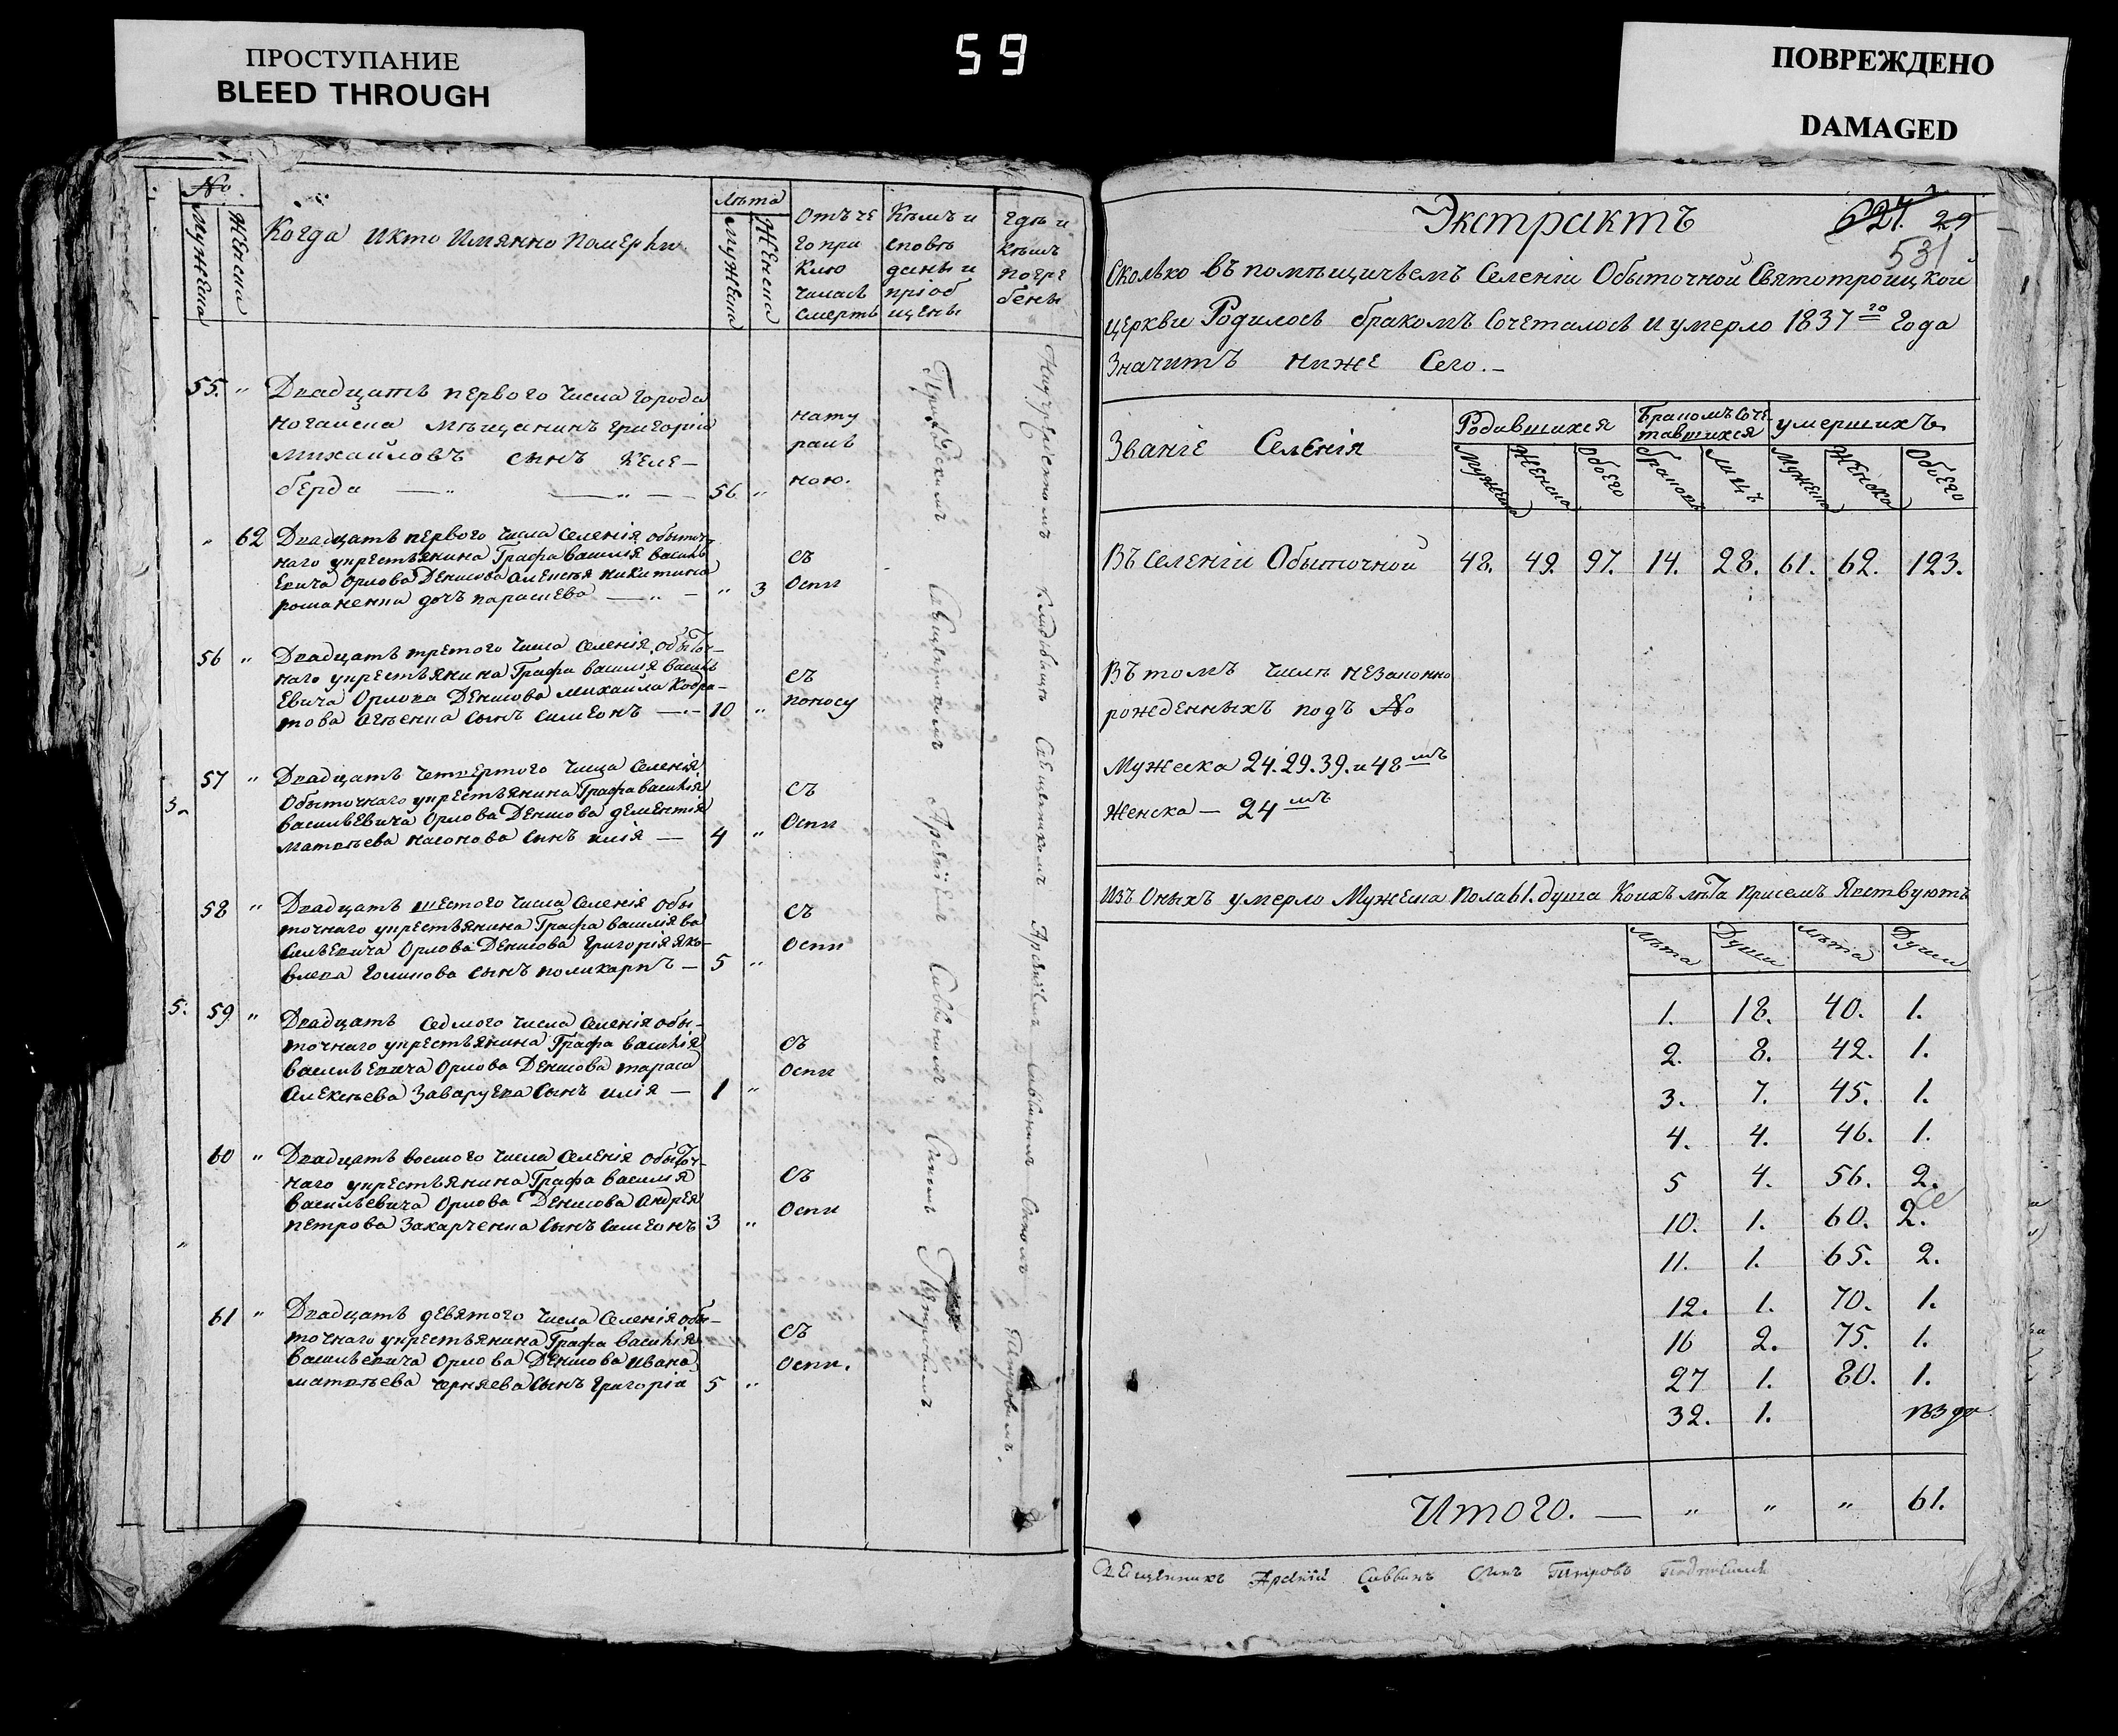 ПРОСТУПАНИЕ
BLEED THROUGH
59
ПОВРЕЖДЕНО
DAMAGED
№
Мужеска
Женска
Когда и кто имянно померли
лѣта
Мужеска
Женска
Отъ че
го при
клю
чилась
смерть
Кѣмъ и
сповѣ
даны и
пріоб
щены
Гдѣ и
кѣмъ
погре
бены
55. „ Двадцать первого числа города
ногайска мѣщанинъ григорій
михайловъ сынъ Келе-
берда — „ — „ — 56 „
нату
раль
ною.
„ 62 Двадцать первого числа селенія обыточ-
наго укрестьянина Графа василія василь
евича орлова Денисова алексея никитина
романенка дочь параскева — „ — „ 3
съ
оспи
56 „ Двадцать третого числа селенія обыточ-
наго укрестьянина Графа василія василь
евича Орлова Денисова михаила Кодра-
това агѣенка сынъ симеонъ — „ — 10 „
съ
поносу
57 „ Двадцать четвертого числа селенія
обыточнаго укрестьянина Графа василія
васильевича Орлова Денисова дементія
матвѣева насонова сынъ илія — 4 „
съ
оспи
58 „ Двадцать шестого числа селенія обы
точнаго укрестьянина Графа василія ва
сильевича Орлова Денисова григорія яко-
влева голикова сынъ поликарпъ — 5 „
съ
оспи
5. 59 „ Двадцать седмого числа селенія обы-
точнаго укрестьянина Графа василія
васильевича Орлова Денисова тараса
алексѣева Заваруева сынъ илія — 1 „
съ
оспи
60 „ Двадцать восмого числа селенія обыточ-
наго укрестьянина Графа василія
васильевича Орлова Денисова андрея
петрова Захарченка сынъ симеонъ 3 „
съ
оспи
61 „ Двадцать девятого числа селенія обы-
точнаго укрестьянина Графа василія
васильевича Орлова Денисова ивана
матвѣева черняева сынъ григорій 5 „
съ
оспи.
Приходскимъ Священникомъ Арсеніемъ Саввинымъ Сыномъ Петровымъ.
кладбищѣ Священникомъ Арсеніемъ Саввинымъ Сыномъ Петровымъ.
Экстрактъ
621. 29
531
Сколько въ помѣщичьемъ Селеніи Обыточной Святотроицкой
церкви Родилось бракомъ Сочеталось и умерло 1837го Года
Значитъ ниже Сего.-
Званіе Селенія
Родившихся
Бракомъ Соче-
тавшихся
умершихъ
Мужеска
Женска
Обоего
браковъ
лицъ
Мужеска
Женска
Обоего
Въ Селеніи Обыточной 48. 49. 97. 14. 28. 61. 62. 123.
Въ томъ числѣ незаконно
рожденныхъ подъ №
Мужеска 24. 29. 39. и 48мъ
Женска — 24мъ
Изъ Оныхъ умерло Мужеска Пола 61. душа Коихъ лѣта присемъ Явствуютъ
лѣта Души лѣта Души
1. 18. 40. 1.
2. 8. 42. 1.
3. 7. 45. 1.
4. 4. 46. 1.
5 4. 56. 2.
10. 1. 60. 2.
11. 1. 65. 2.
12. 1. 70. 1.
16 2. 75. 1.
27 1. 80. 1.
32. 1.
Итого. — „ „ „ 61.
Священникъ Арсеній Саввинъ Сынъ Петровъ